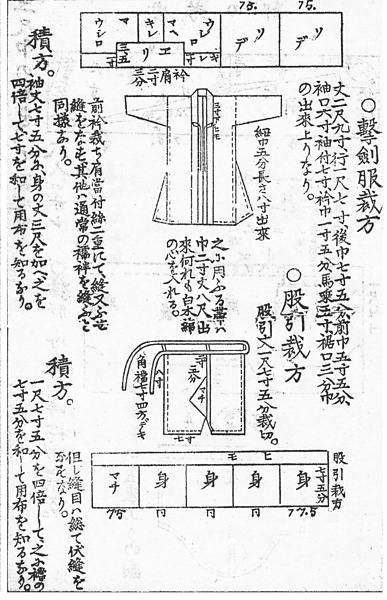 ○擊劍服裁方
丈二尺九寸行一尺七寸後巾七寸五分前巾五寸五分
袖口六寸袖付七寸衿巾一寸五分馬乘三寸裾口三分巾
の出來上りなり。
紐巾五分長さ八寸出來
三寸
之に用ふる帯ハ
巾二寸丈八尺出
來何れも白木綿
の心を入れる。
前衿裁ち肩當付絲二重にて縫又ふせ
縫をなせ其他ハ通常の襦袢を縫ふと
同様あり。
積方。
袖丈七寸五分に身の丈三尺を加へ之を
四倍して七寸を和して用布を知るなり。
75.
75.
ソデ
ソデ
ウシロ
マヘ
キレ
マ
ウシロ
エリ
キレ
三五
寸
衿肩二寸三分
○股引裁方
股引丈一尺七寸五分裁切。
八寸
マチ
七寸
八角襠七寸四方デキ
股引裁方
七寸五分
ヒモ
身
身
身
身
マチ
77.5
〃
〃
〃
75
但し縫目ハ総て伏縫を
なすなり。
積方。
一尺七寸五分を四倍して之に襠の
七寸五分を和して用布を知るなり。